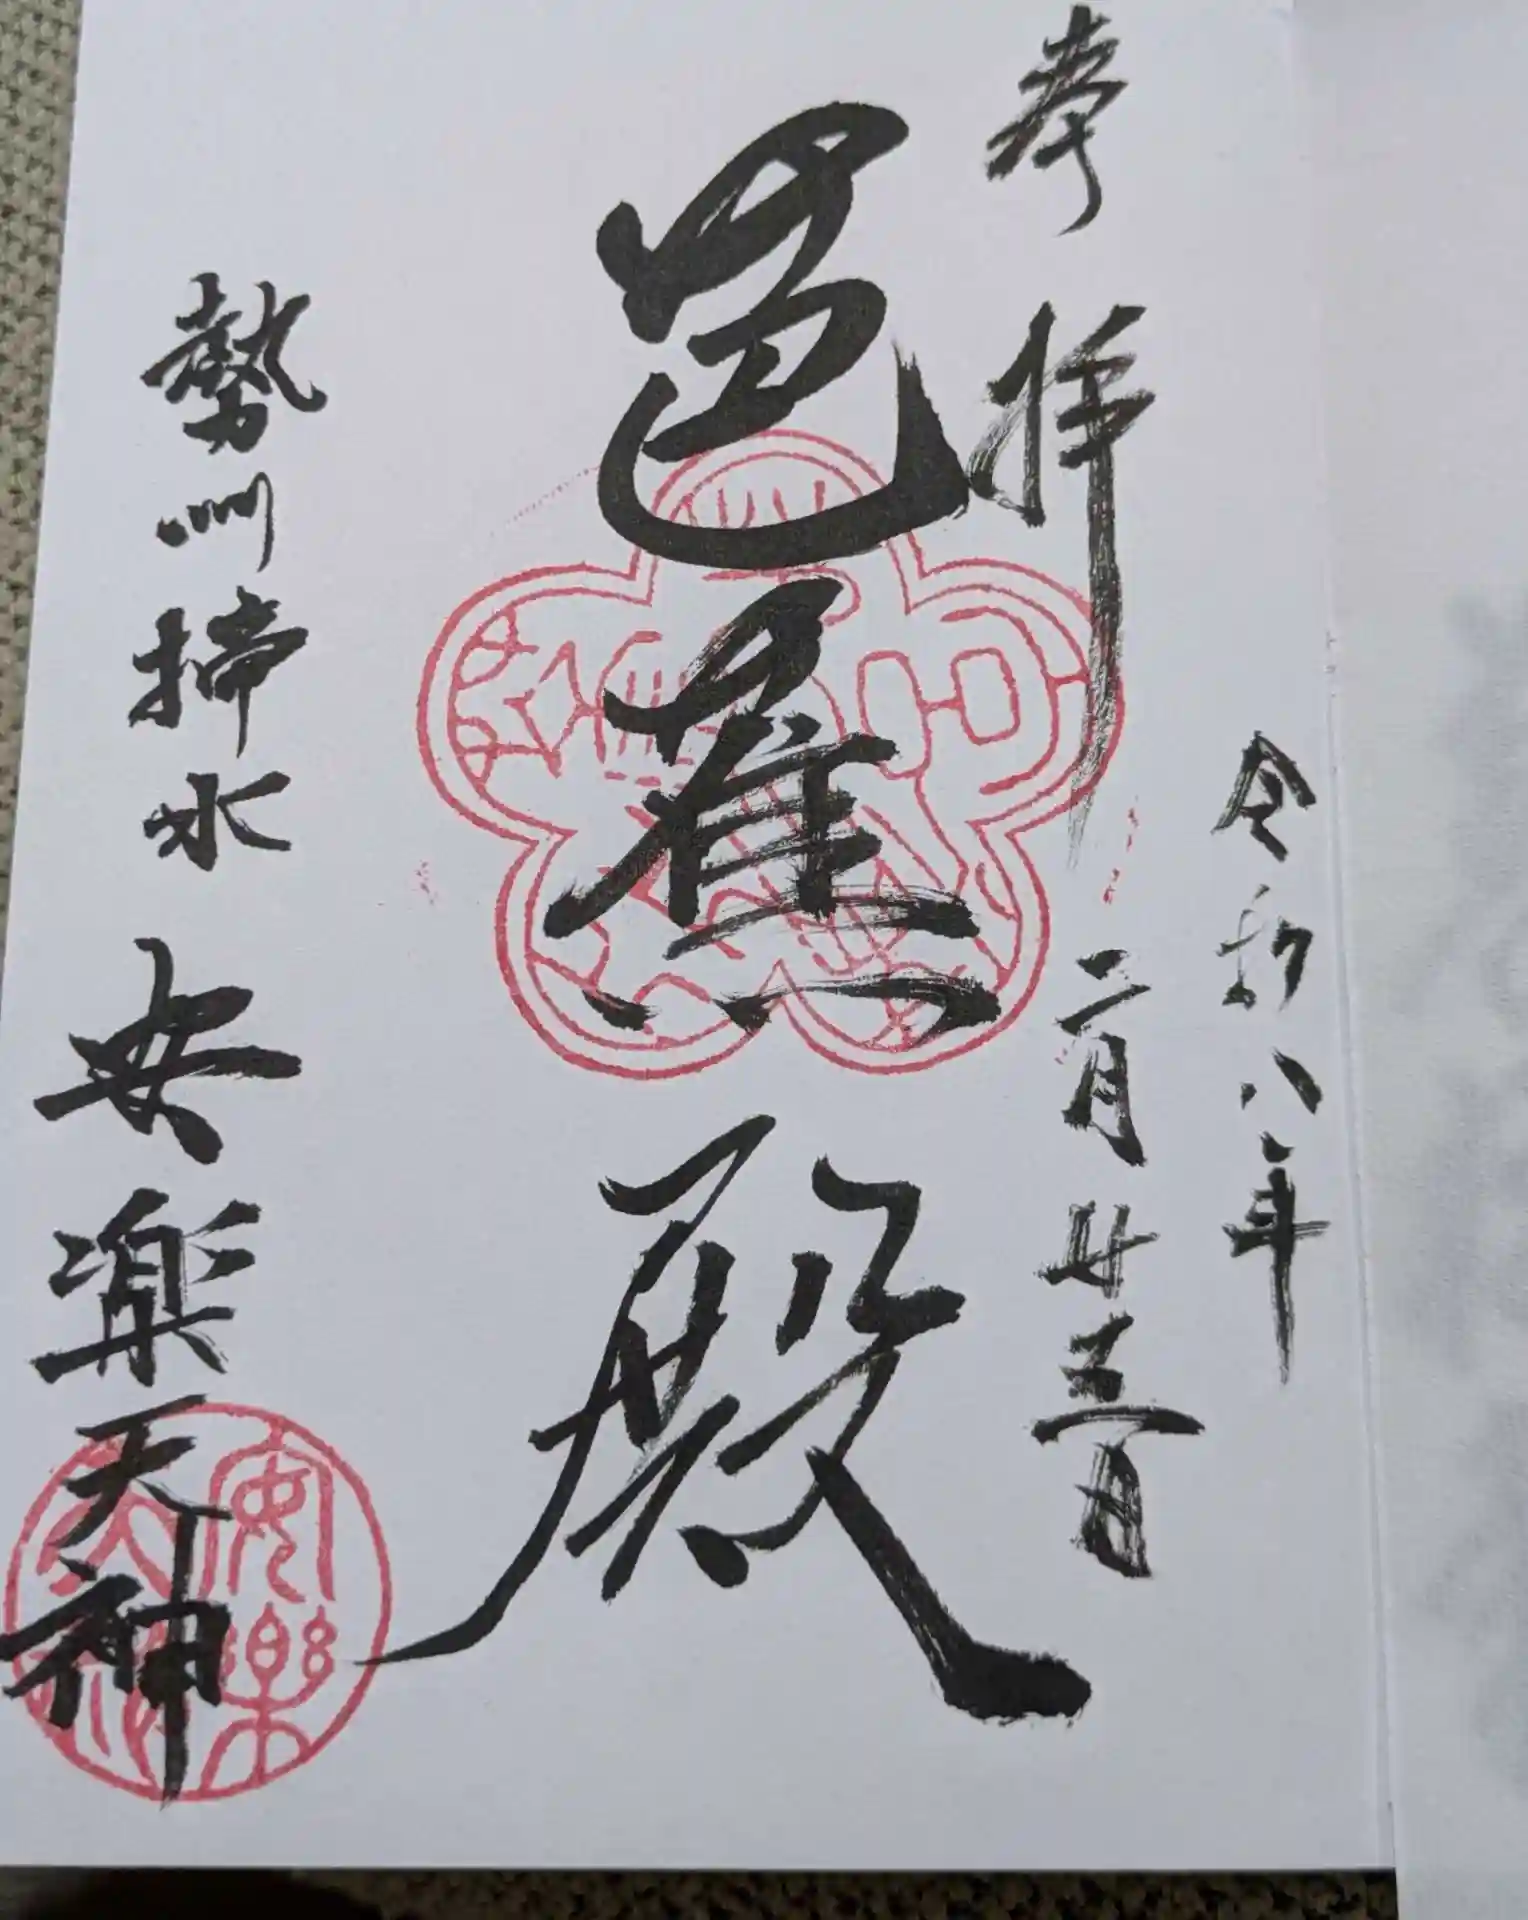 奉拝
令和八年
二月廿三日
芭蕉殿
勢州掃水
安楽天神
安楽